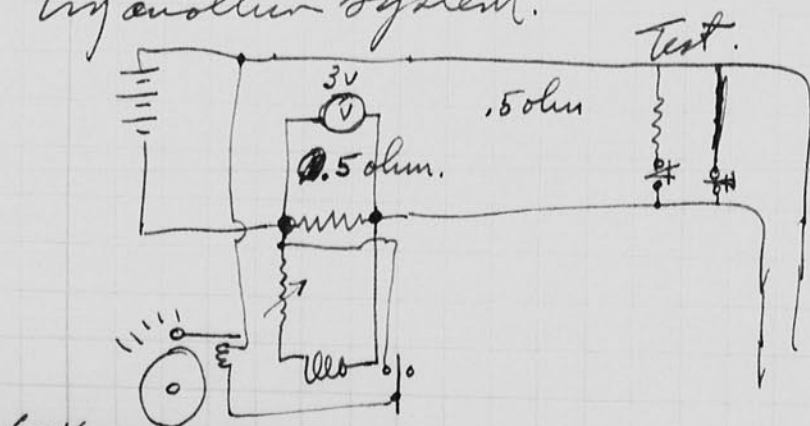 Try another system.
Test.
3v
V
.5 ohm
.5 ohm.